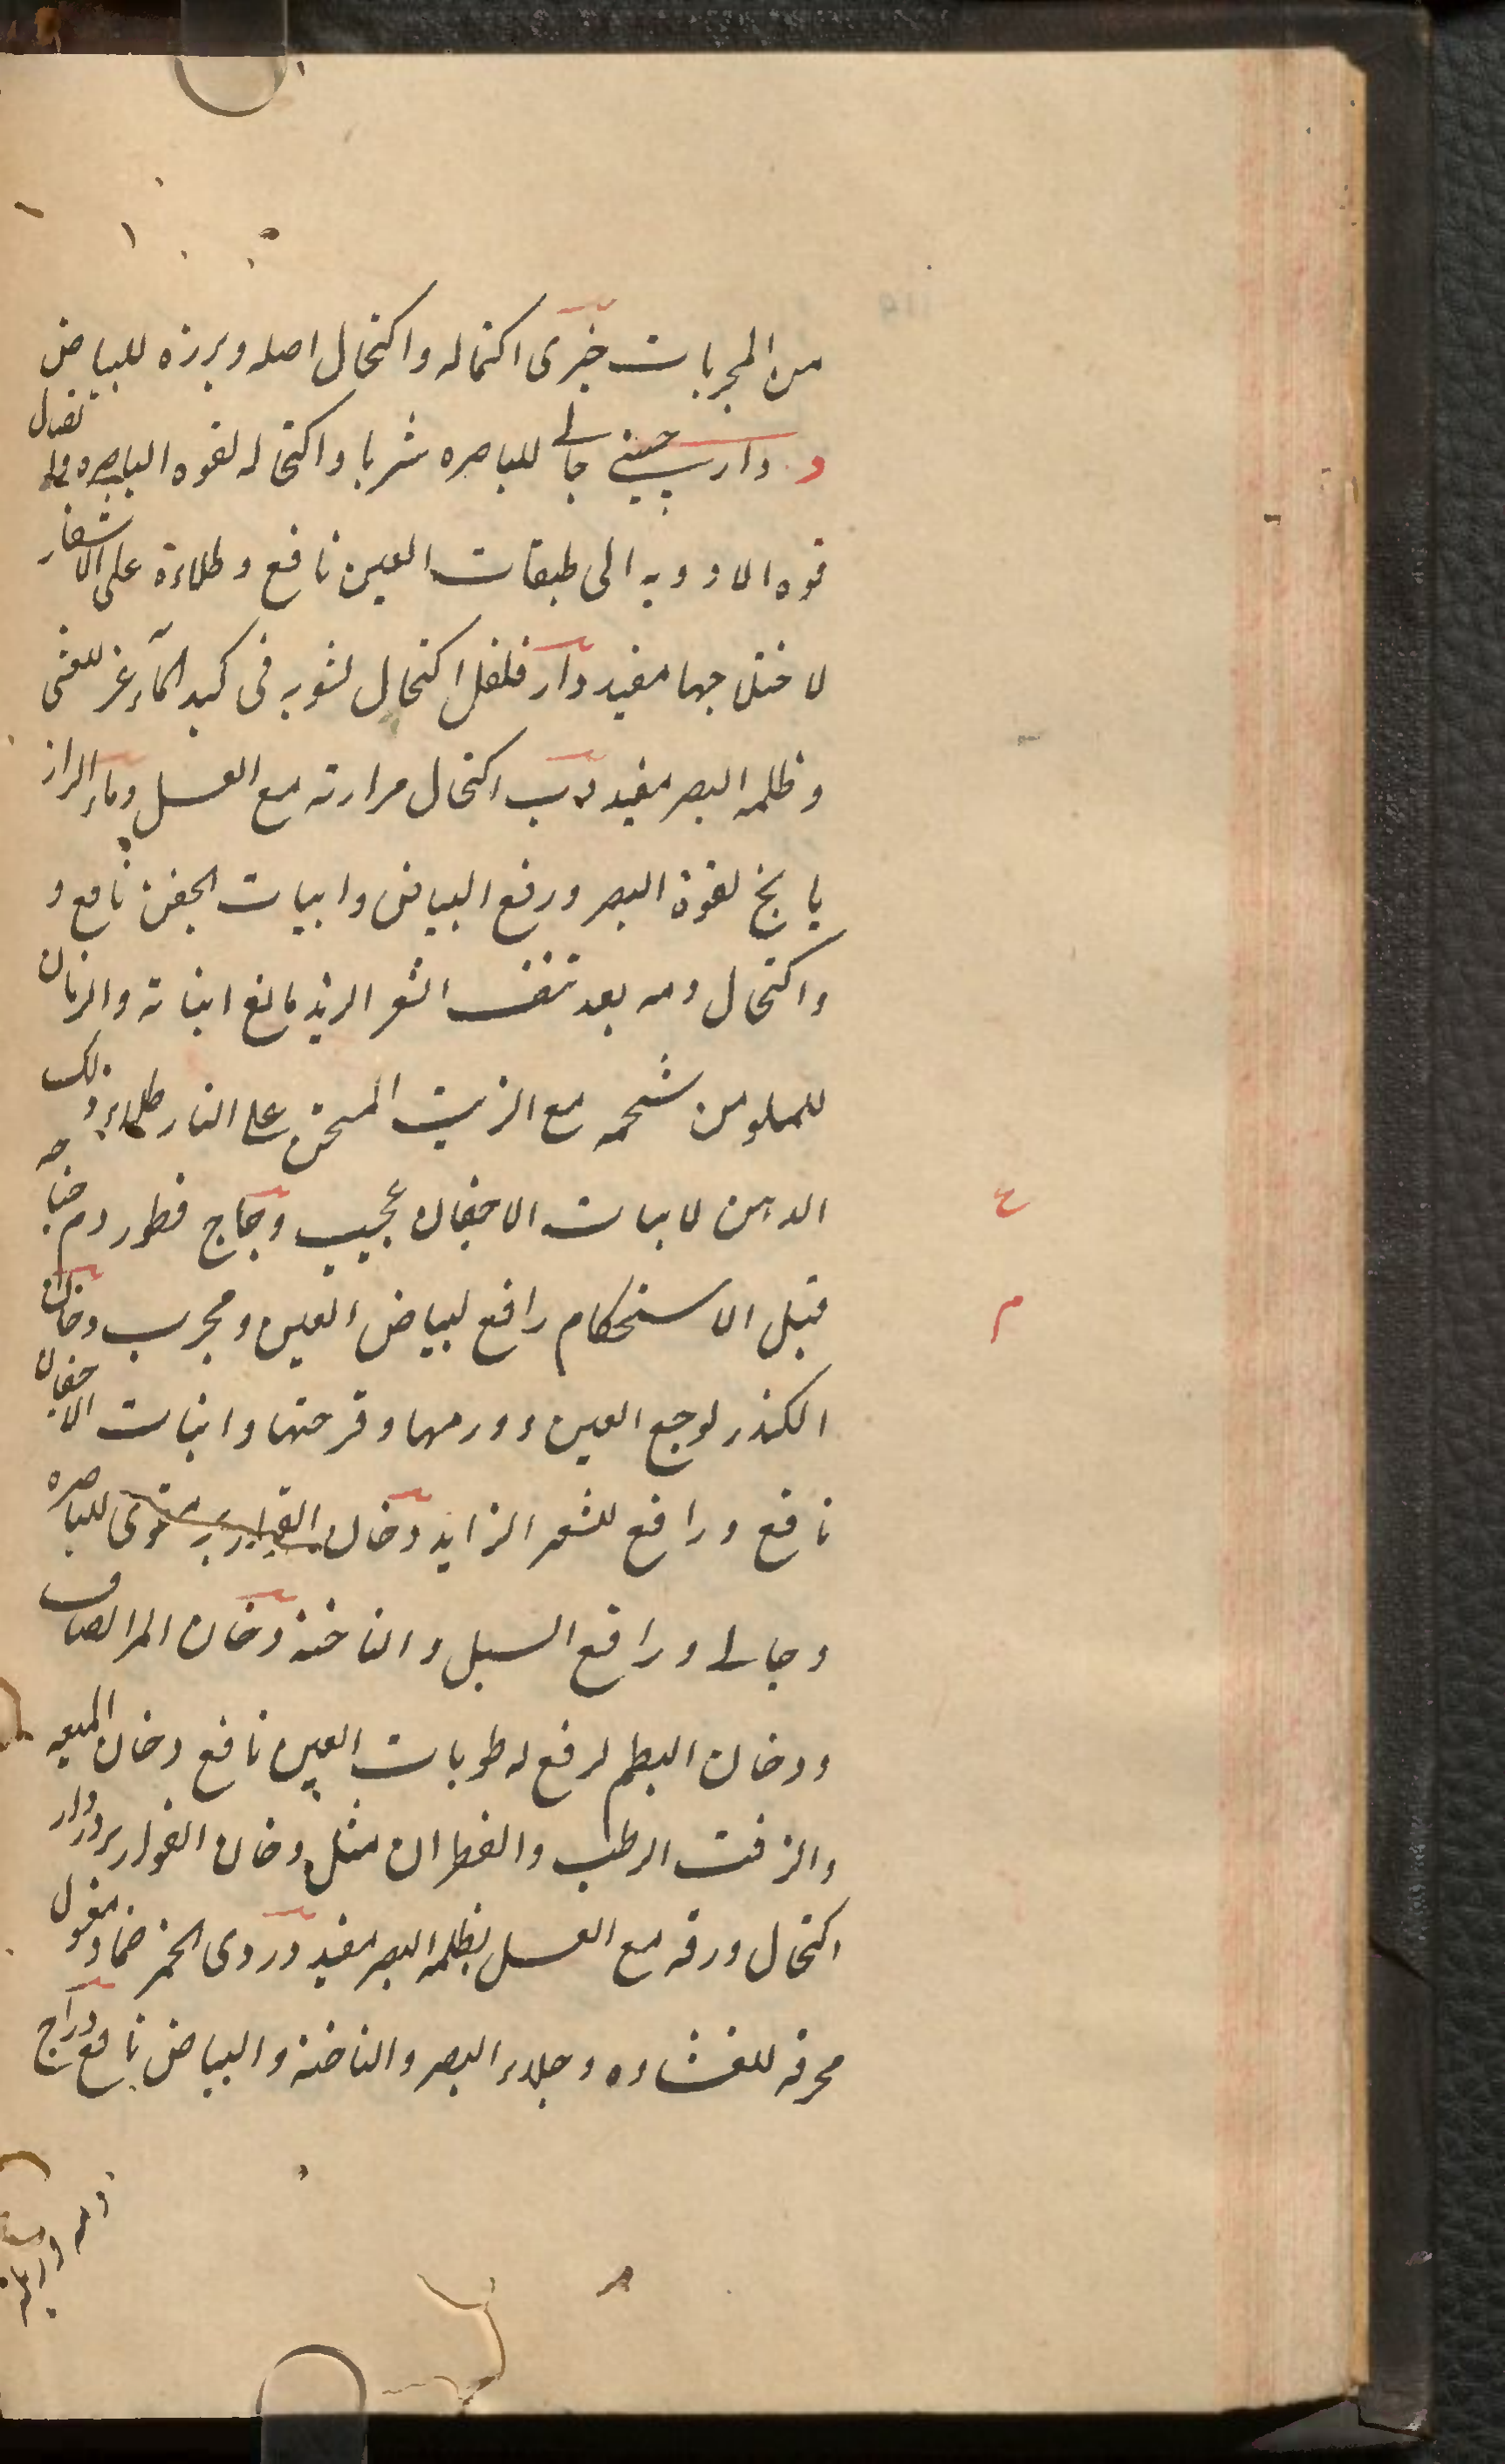 من المجربات خيرى اكتحاله واكتحال اصله وبزره للبياض
د دارچينى جالى للباصره شربا واكتحاله لقوه الباصره وايصال
قوه الادويه الى طبقات العين نافع وطلاءه على الاشفار
لاختلاجها مفيد دار فلفل اكتحال لشويه فى كبد الماعز للعشى
وظلمه البصر مفيد دب اكتحال مرارته مع العسل وماء الراز
يانج لقوة البصر ورفع البياض وانبات الجفن نافع و
واكتحال دمه بعد نتف الشعر الزيد مانع انباته والزمان
للصلو من شحمه مع الزيت المسخن على النار طلاء وذلك
الدهن لانبات الاجفان عجيب دجاج قطور دم جناحه
ع
قبل الاستحكام رافع لبياض العين ومجرب دخان
م
الكندر لوجع العين وورمها وقرحتها وانبات الاجفان
نافع ورافع للشعر الزايد دخان القوارير مقوى للباصره
وجالى ورافع السبل والناخنه دخان المر الصاف
ودخان البطم لرفع رطوبات العين نافع دخان الميعه
والزفت الرطب والقطران مثل دخان القوارير دردار
اكتحال ورقه مع العسل لظلمه البصر مفيد دردى الخمر ضمادا مغسول
محرقه للغشاوه وجلاء البصر والناخنه والبياض نافع دراج